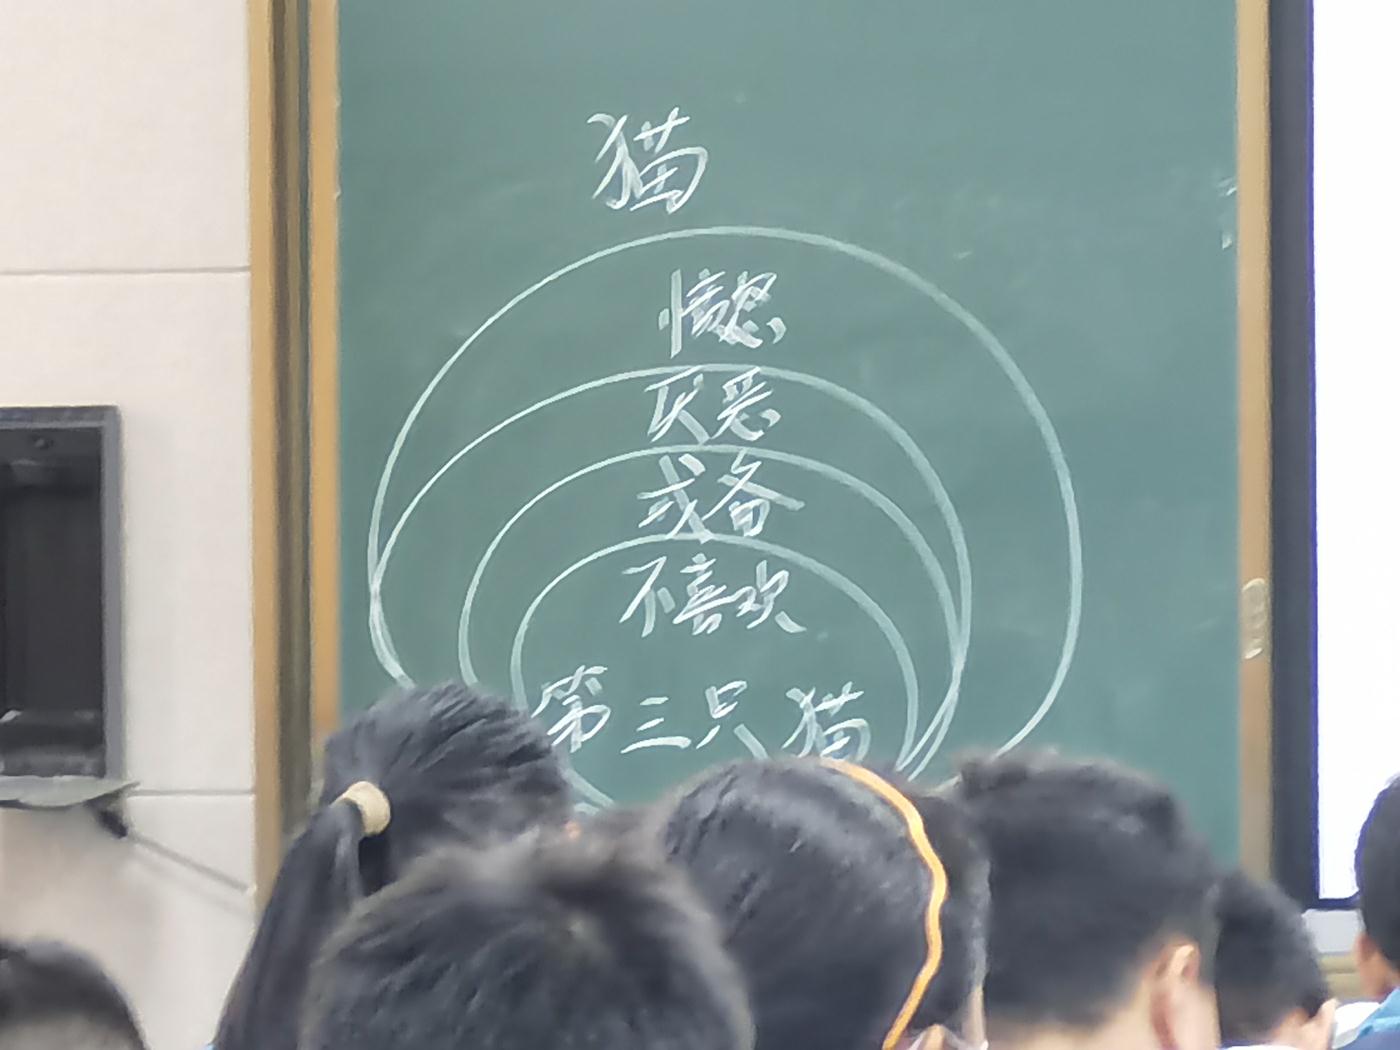 猫
愤怒
厌恶
戒备
不喜欢
第三只猫